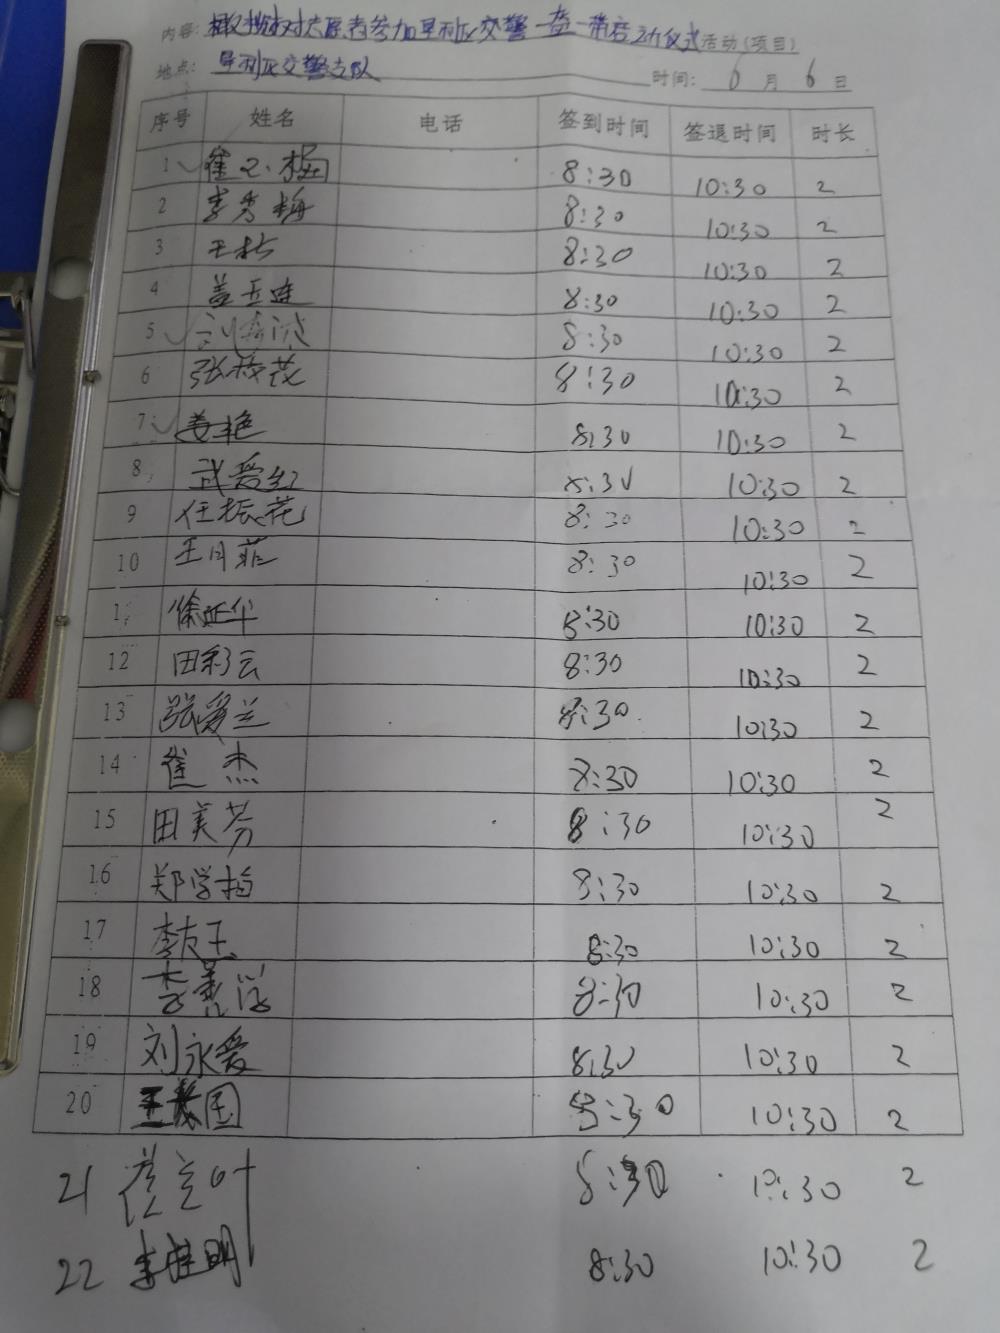 内容: 志愿者参加 交警 一盔一带启动仪式 活动(项目)
地点: 交警支队 时间: 6 月 6 日
序号 姓名 电话 签到时间 签退时间 时长
1 崔 梅 8:30 10:30 2
2 李秀梅 8:30 10:30 2
3 王 8:30 10:30 2
4 盖玉连 8:30 10:30 2
5 8:30 10:30 2
6 张桂花 8:30 10:30 2
7 姜艳 8:30 10:30 2
8 武爱红 8:30 10:30 2
9 任振花 8:30 10:30 2
10 王月菲 8:30 10:30 2
1 徐延华 8:30 10:30 2
12 田彩云 8:30 10:30 2
13 张爱兰 8:30 10:30 2
14 崔杰 8:30 10:30 2
15 田美芬 8:30 10:30 2
16 郑学梅 8:30 10:30 2
17 李友玉 8:30 10:30 2
18 李 8:30 10:30 2
19 刘永爱 8:30 10:30 2
20 王 国 8:30 10:30 2
21 崔立叶 8:30 10:30 2
22 李桂明 8:30 10:30 2